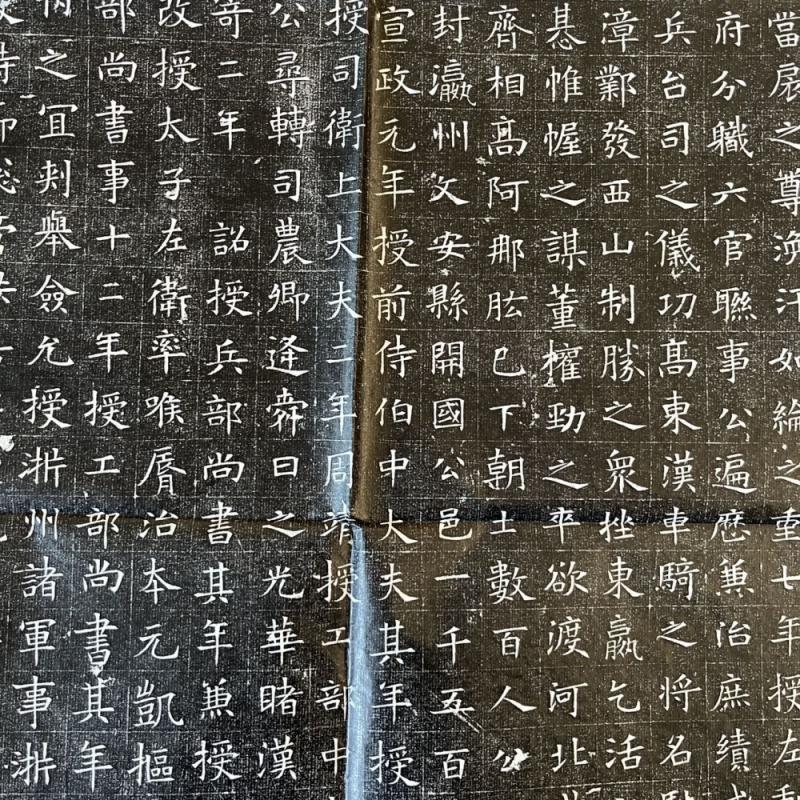 當扆之尊渙汗如綸之重七年授左
府分職六官聯事公遍歷兼治庶績
兵台司之儀功高東漢車騎之將名
漳鄴發西山制勝之眾挫東嬴乞活
惎帷幄之謀董權勁之卒欲渡河北
齊相高阿那肱已下朝士數百人公
封瀛州文安縣開國公邑一千五百
宣政元年授前侍伯中大夫其年授
授司衛上大夫二年周靖授工部中
公尋轉司農卿逢舜日之光華睹漢
寄二年 詔授兵部尚書其年兼授
改授太子左衛率喉脣治本元凱樞
部尚書事十二年授工部尚書其年
之宜刺舉僉允授淅州諸軍事淅